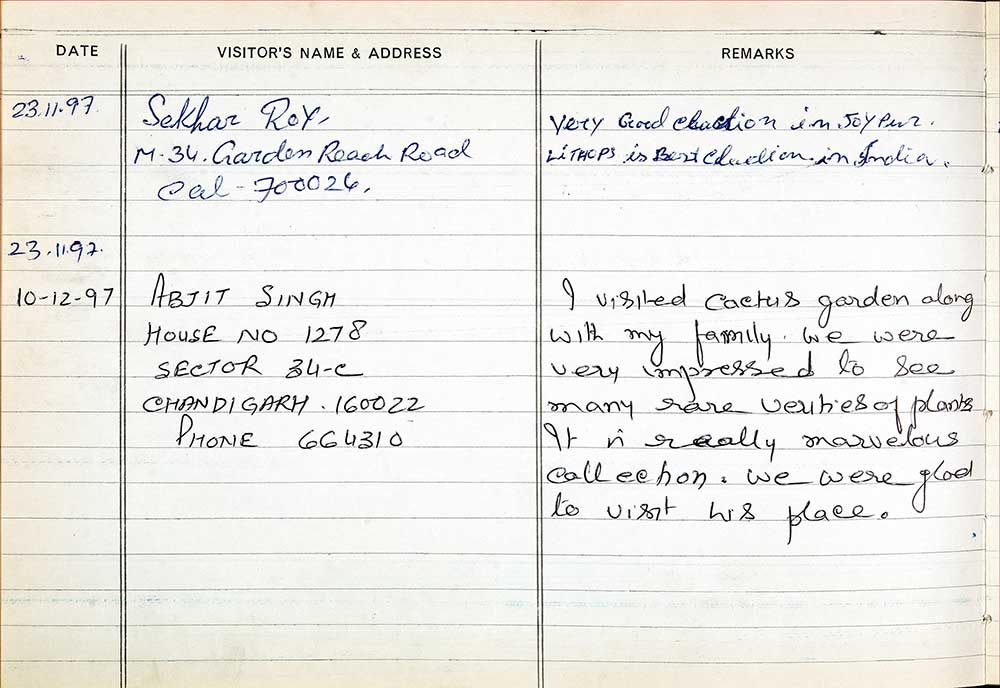 DATE VISITOR'S NAME & ADDRESS REMARKS
23.11.97.
Sekhar Roy,
M-34. Garden Reach Road
Cal-700024.
Very Good in Joypur.
LITHOPS is Best in India.
23.11.97.
10-12-97
ABJIT SINGH
HOUSE NO 1278
SECTOR 34-C
CHANDIGARH. 160022
PHONE 664310
I visited cactus garden along
with my family. We were
very impressed to see
many rare verities of plants
It is really marvelous
callection. we were glad
to visit his place.